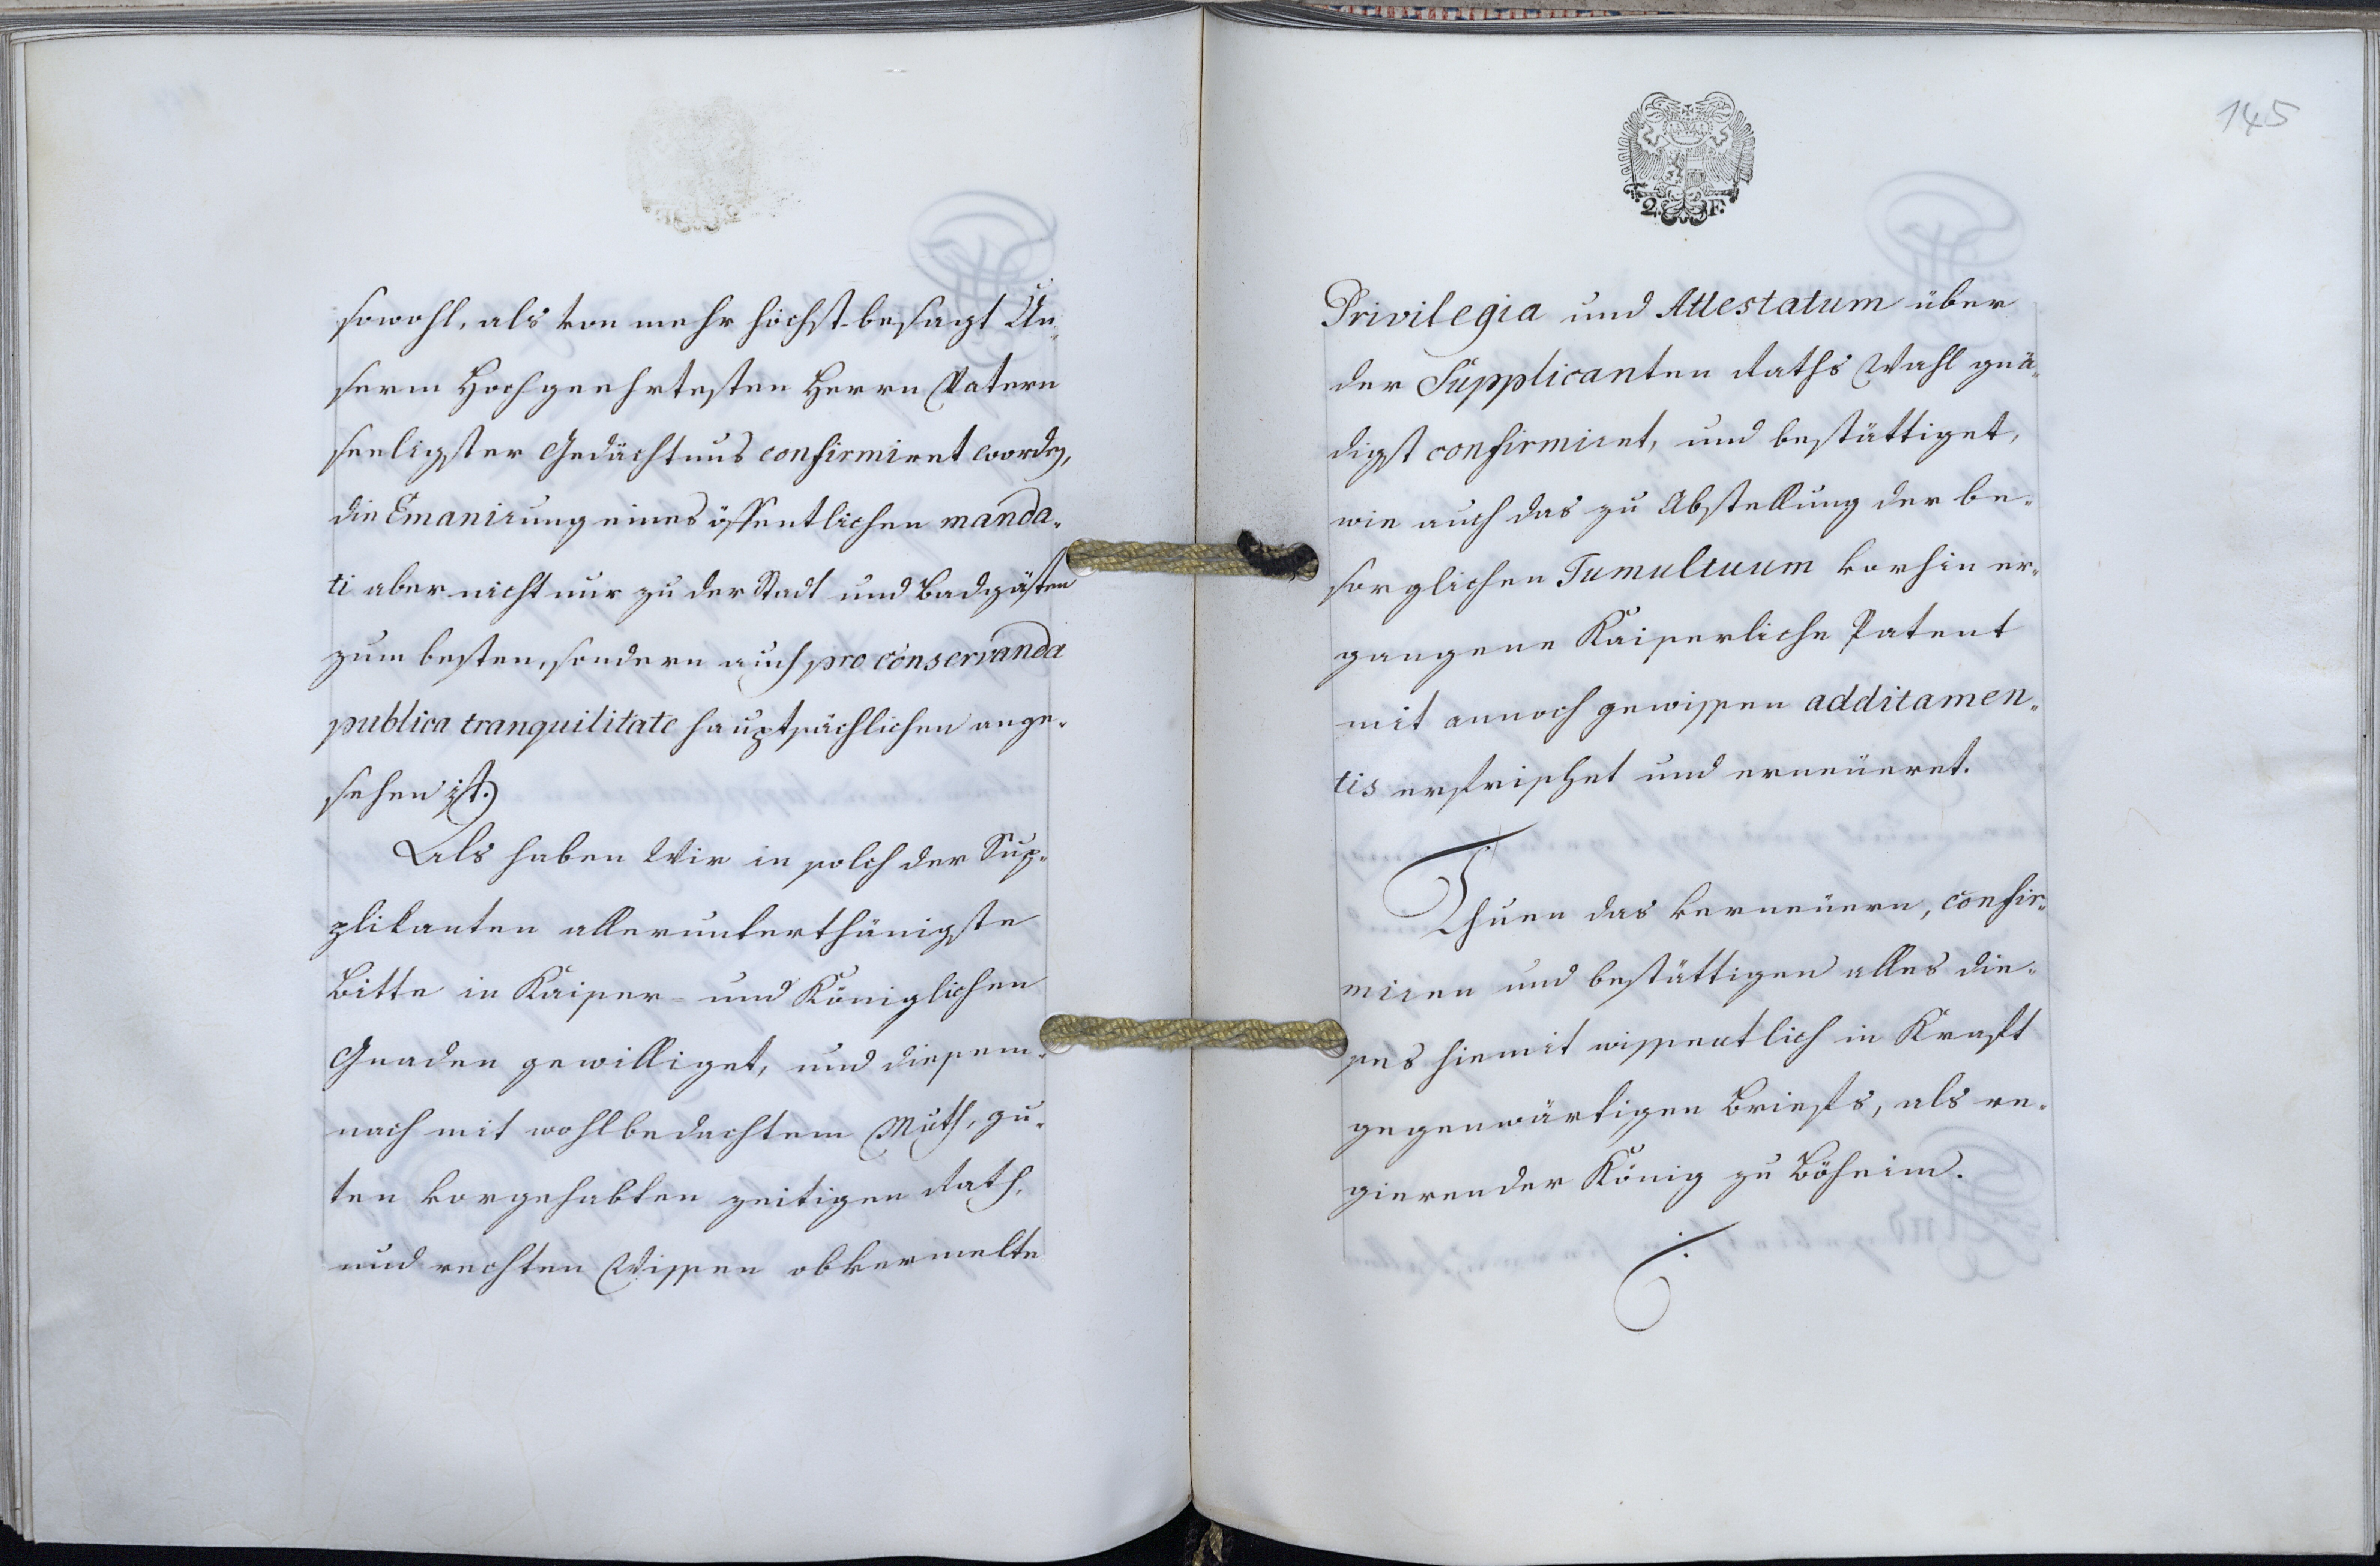 sowohl, als von mehr höchst-besagt Un-
serm Hochgeehrtesten Herrn Vatern
seeligster Gedächtnus confirmiret worden,
die Emanirung eines öffentlichen manda-
ti aber nicht nur zu der Stadt und Badgästen
zum besten, sondern auch pro conservanda
publica tranquilitate hauptsächlichen ange-
sehen ist.)
Als haben Wir in solch der Sup-
plikanten allerunterthänigste
Bitte in Kaiser- und Königlichen
Gnaden gewilliget, und diesem-
nach mit wohlbedachtem Muth, gu-
ten vorgehabten zeitigen Rath,
und rechten Wissen obvermelte
145
2. F.
Privilegia und Attestatum über
der Supplicanten Raths Wahl gnä-
digst confirmiret, und bestättiget,
wie auch das zu Abstellung der be-
sorglichen Tumultuum vorhin er-
gangene Kaiserliche Patent
mit annoch gewissen additamen-
tis erfrischet und erneüeret.
Thuen das verneüern, confir-
miren und bestättigen alles die-
ses hiemit wissentlich in Krafft
gegenwärtigen Brieffs, als re-
gierender König zu Böheim.